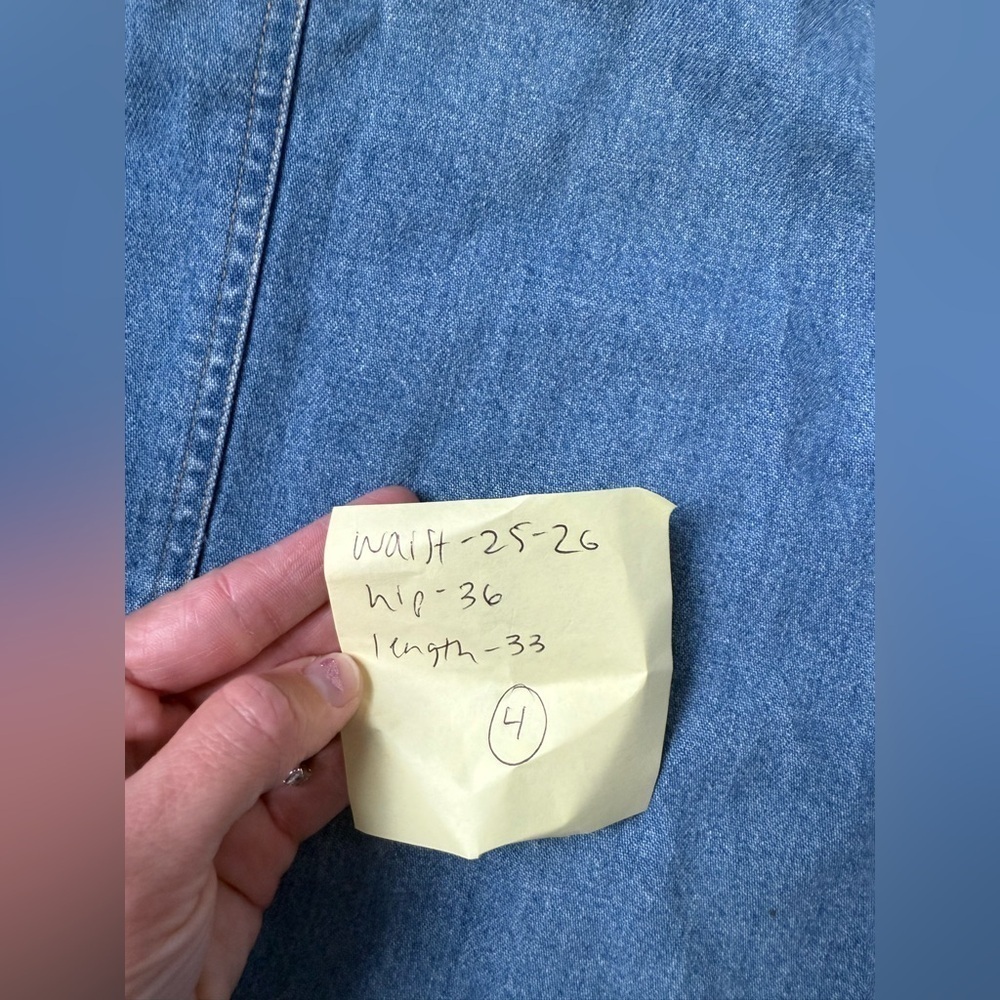 waist-25-26
hip-36
length-33
4